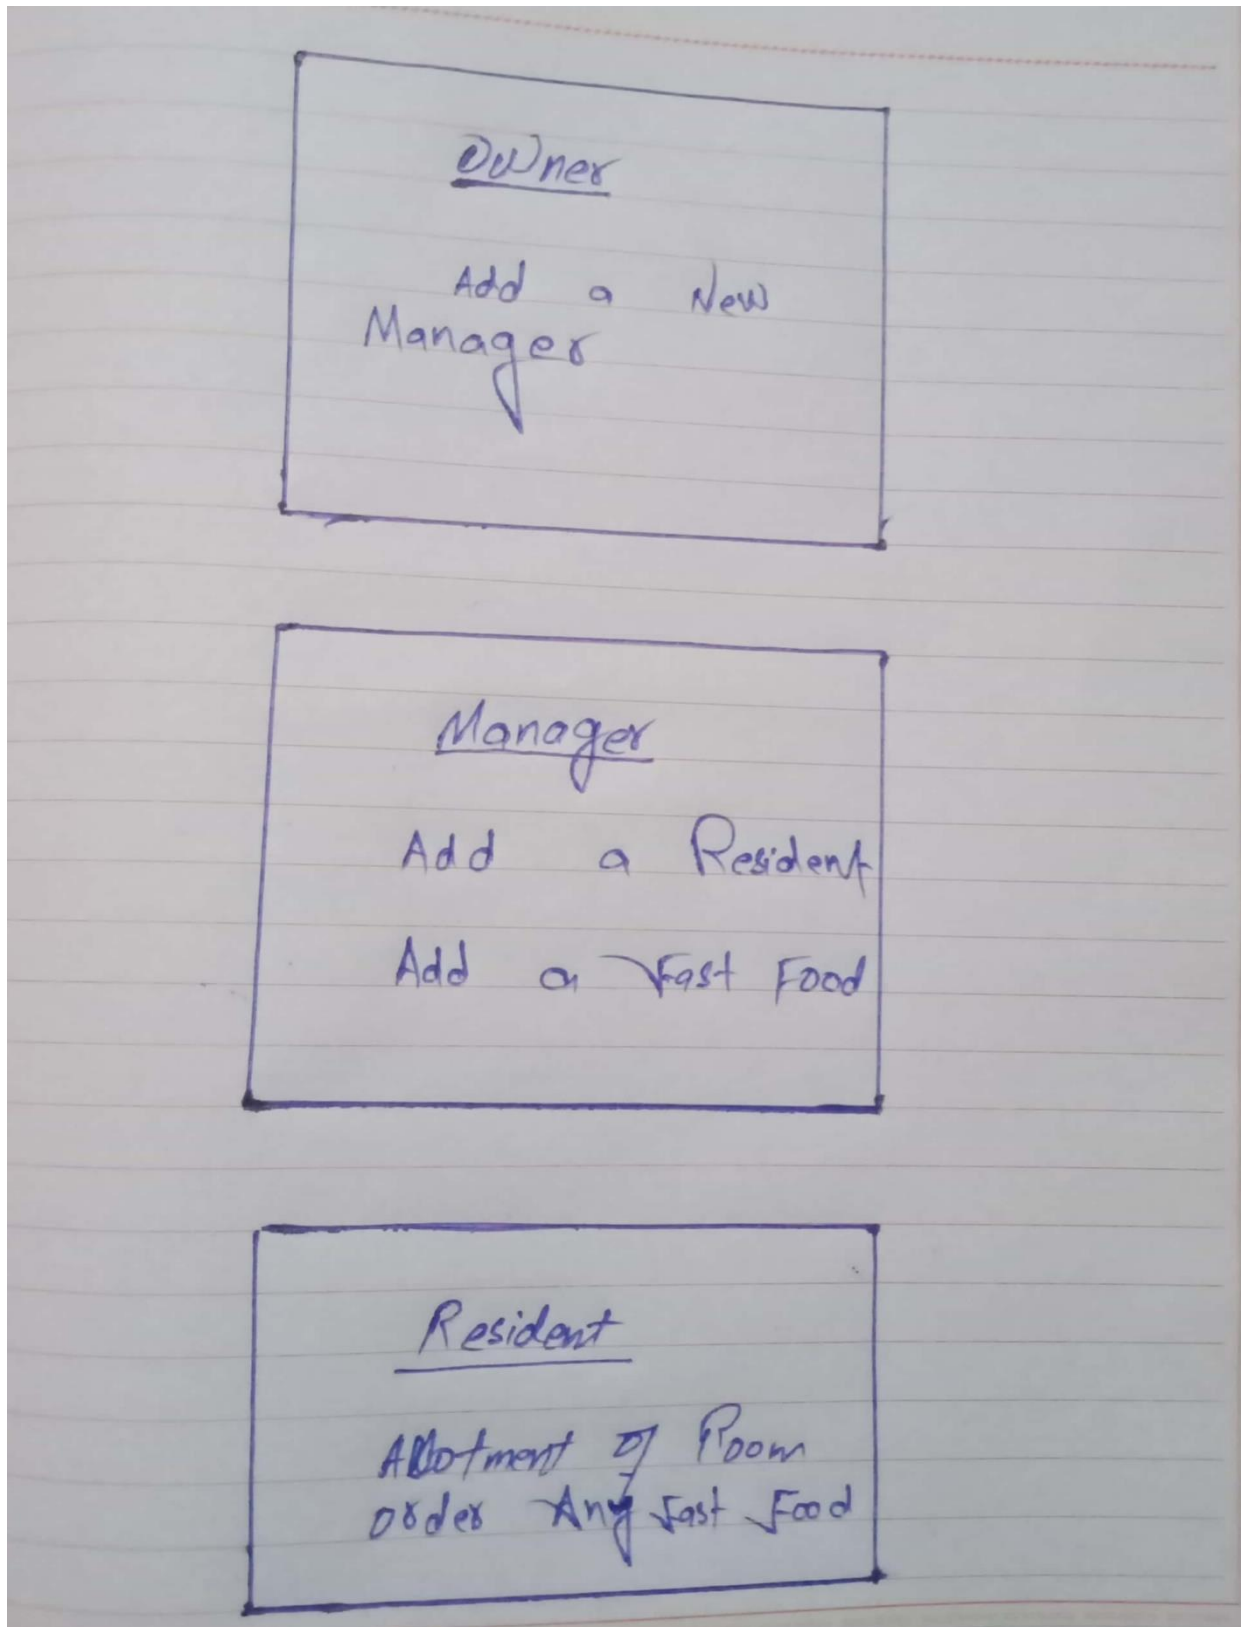 Owner
Add a New
Manager
Manager
Add a Resident
Add a Fast Food
Resident
Allotment of Room
order Any Fast Food